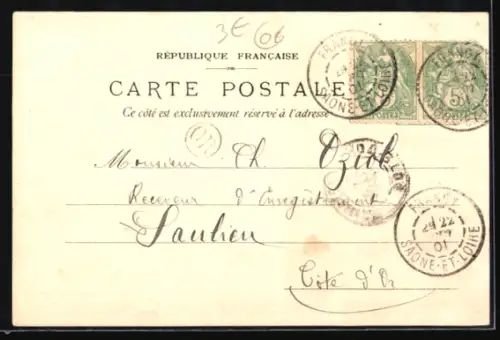 3E 06
RÉPUBLIQUE FRANÇAISE
CARTE POSTALE
Ce côté est exclusivement réservé à l'adresse
OR
Monsieur Ch. Oziol
Receveur d'Enregistrement
Saulieu
Côte d'Or
SAONE-ET-LOIRE
SAONE-ET-LOIRE
22
01
SAONE-ET-LOIRE